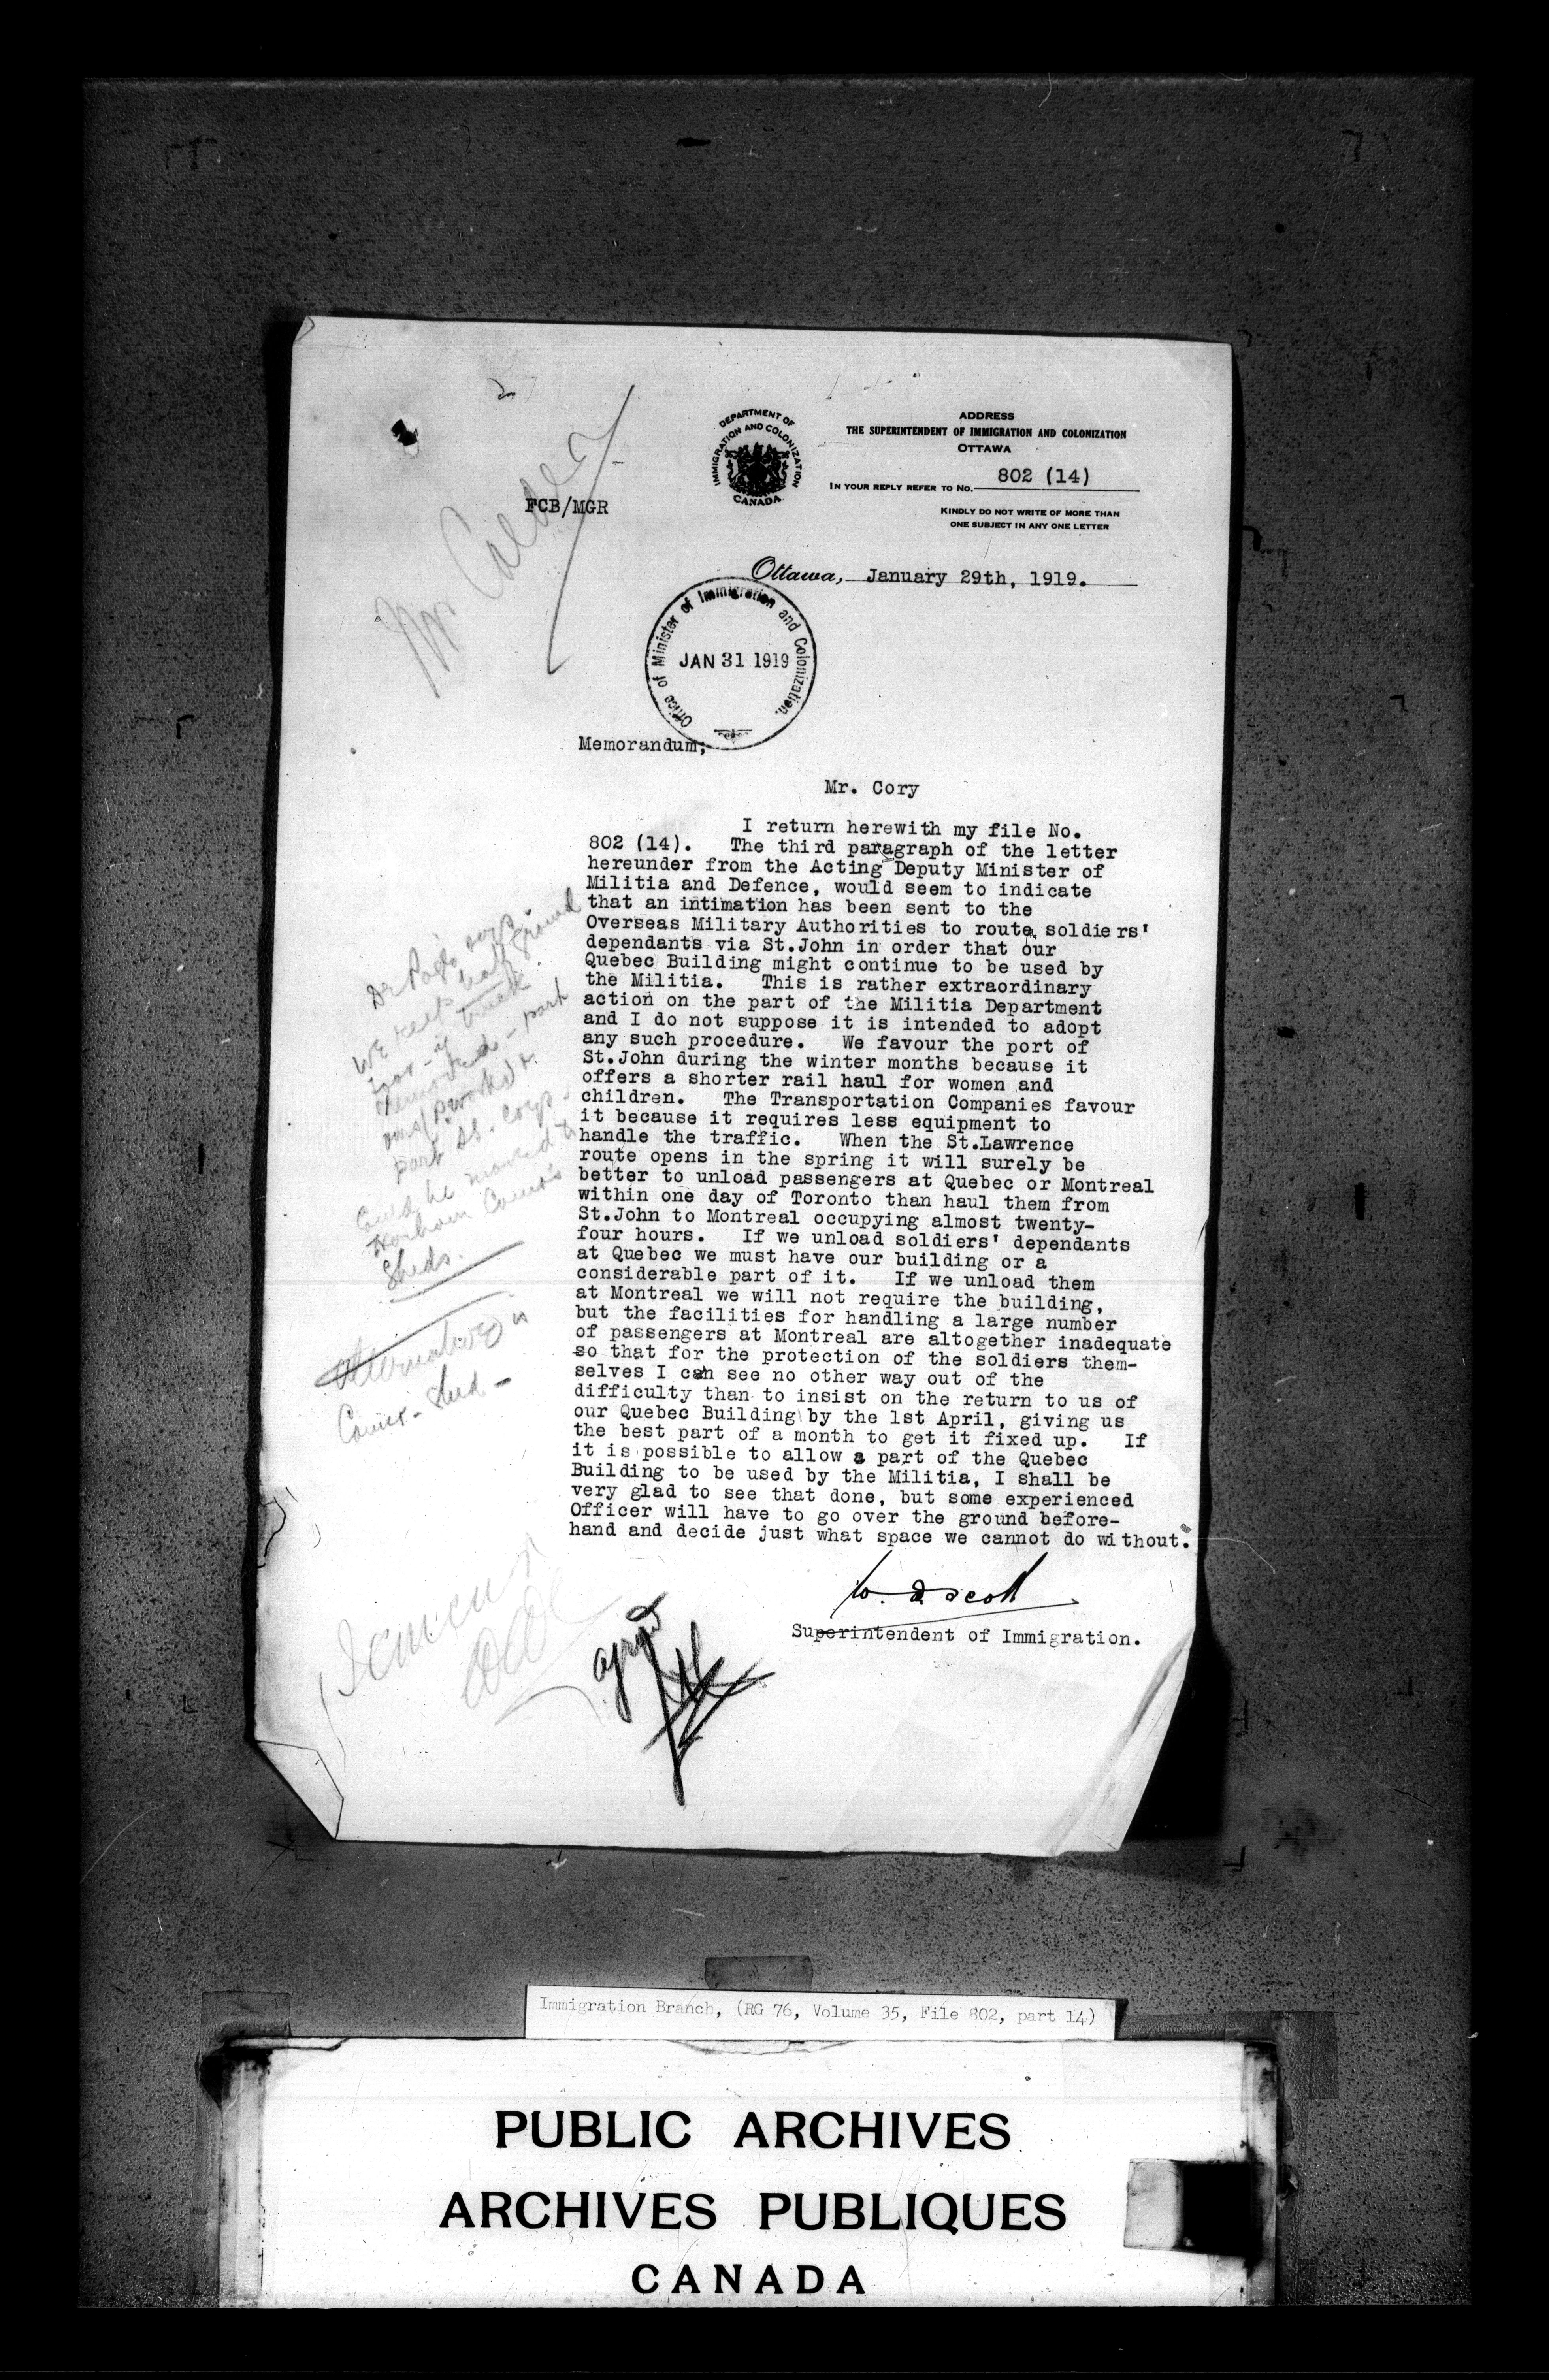 DEPARTMENT OF
IMMIGRATION AND COLONIZATION
CANADA
ADDRESS
THE SUPERINTENDENT OF IMMIGRATION AND COLONIZATION
OTTAWA
IN YOUR REPLY REFER TO No. 802 (14)
KINDLY DO NOT WRITE OF MORE THAN
ONE SUBJECT IN ANY ONE LETTER
FCB/MGR
Mr Calder
Ottawa, January 29th, 1919.
Office of Minister of Immigration and Colonization.
JAN 31 1919
Memorandum;
Mr. Cory
I return herewith my file No.
802 (14). The third paragraph of the letter
hereunder from the Acting Deputy Minister of
Militia and Defence, would seem to indicate
that an intimation has been sent to the
Overseas Military Authorities to route soldiers'
dependants via St.John in order that our
Quebec Building might continue to be used by
the Militia. This is rather extraordinary
action on the part of the Militia Department
and I do not suppose it is intended to adopt
any such procedure. We favour the port of
St.John during the winter months because it
offers a shorter rail haul for women and
children. The Transportation Companies favour
it because it requires less equipment to
handle the traffic. When the St.Lawrence
route opens in the spring it will surely be
better to unload passengers at Quebec or Montreal
within one day of Toronto than haul them from
St.John to Montreal occupying almost twenty-
four hours. If we unload soldiers' dependants
at Quebec we must have our building or a
considerable part of it. If we unload them
at Montreal we will not require the building,
but the facilities for handling a large number
of passengers at Montreal are altogether inadequate
so that for the protection of the soldiers them-
selves I can see no other way out of the
difficulty than to insist on the return to us of
our Quebec Building by the 1st April, giving us
the best part of a month to get it fixed up. If
it is possible to allow a part of the Quebec
Building to be used by the Militia, I shall be
very glad to see that done, but some experienced
Officer will have to go over the ground before-
hand and decide just what space we cannot do without.
W. D Scott
Superintendent of Immigration.
says
We keep half ground
part
part
Corps
Could be moved to
Harbour Comrs
Sheds.
Alternative
Shed
Immigration Branch, (RG 76, Volume 35, File 802, part 14)
PUBLIC ARCHIVES
ARCHIVES PUBLIQUES
CANADA